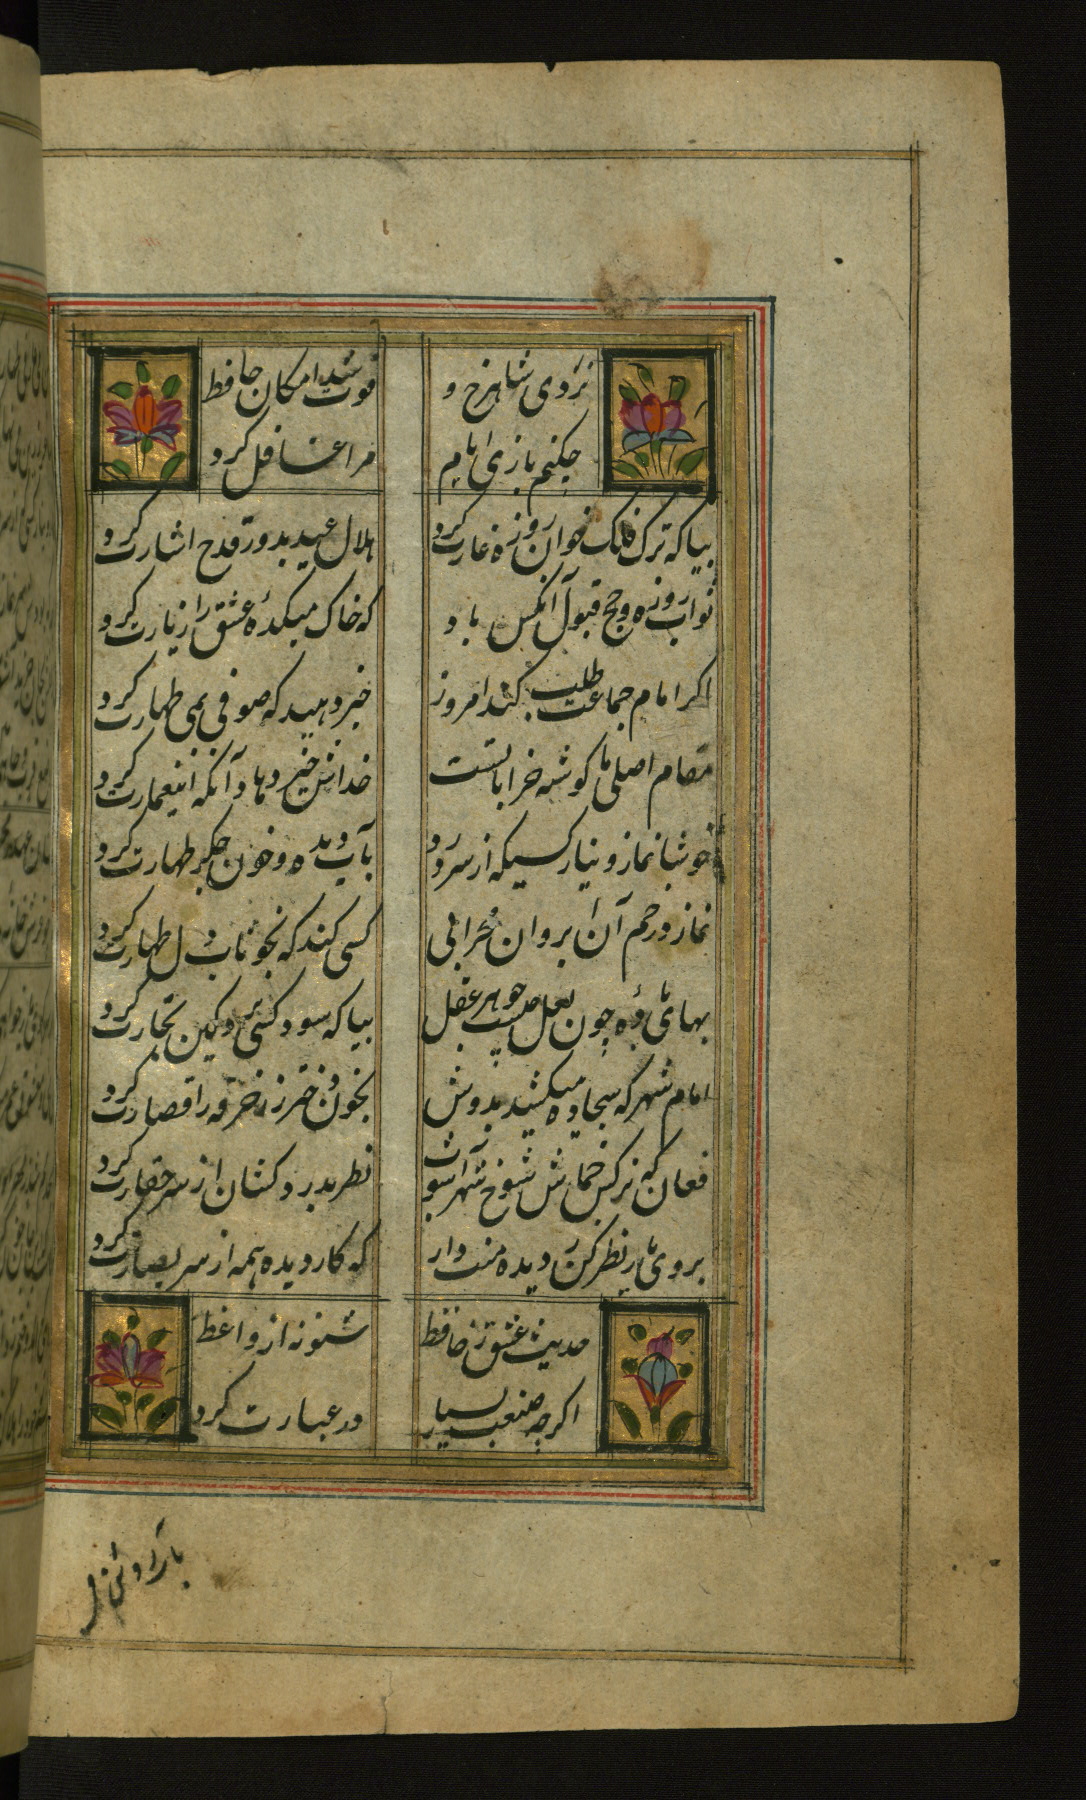 نزدی شاه رخ و
فوت شد امکان حافظ
چکنم بازی ایام
مرا غافل کرد
بیا که ترک فلک خوان روزه غارت کرد
هلال عید بدور قدح اشارت کرد
ثواب روزه و حج قبول آنکس باد
که خاک میکدهٔ عشق را زیارت کرد
اکر امام جماعت طلب کند امروز
خبر دهید که صوفی بمی طهارت کرد
مقام اصلی ما کوشه خراباتست
خداش خیر دهاد آنکه این عمارت کرد
خوشا نماز و نیاز کسیکه از سر درد
بآب دیده و خون جکر طهارت کرد
نماز در خم آن ابروان محرابی
کسی کند که بخوناب دل طهارت کرد
بهای باده چون لعل چیست جوهر عقل
بیا که سود کسی برد کین تجارت کرد
امام شهر که سجاده میکشید بدوش
بخون دختر رز خرقه را قصارت کرد
فغان که نرکس جماش شوخ شهرآشوب
نظر بدرد کشان از سر حقارت کرد
بروی یار نظر کن ز دیده منت دار
که کار دیده همه از سر بصارت کرد
حدیث عشق ز حافظ
شنو نه از واعظ
اکرچه صنعت بسیار
در عبارت کرد